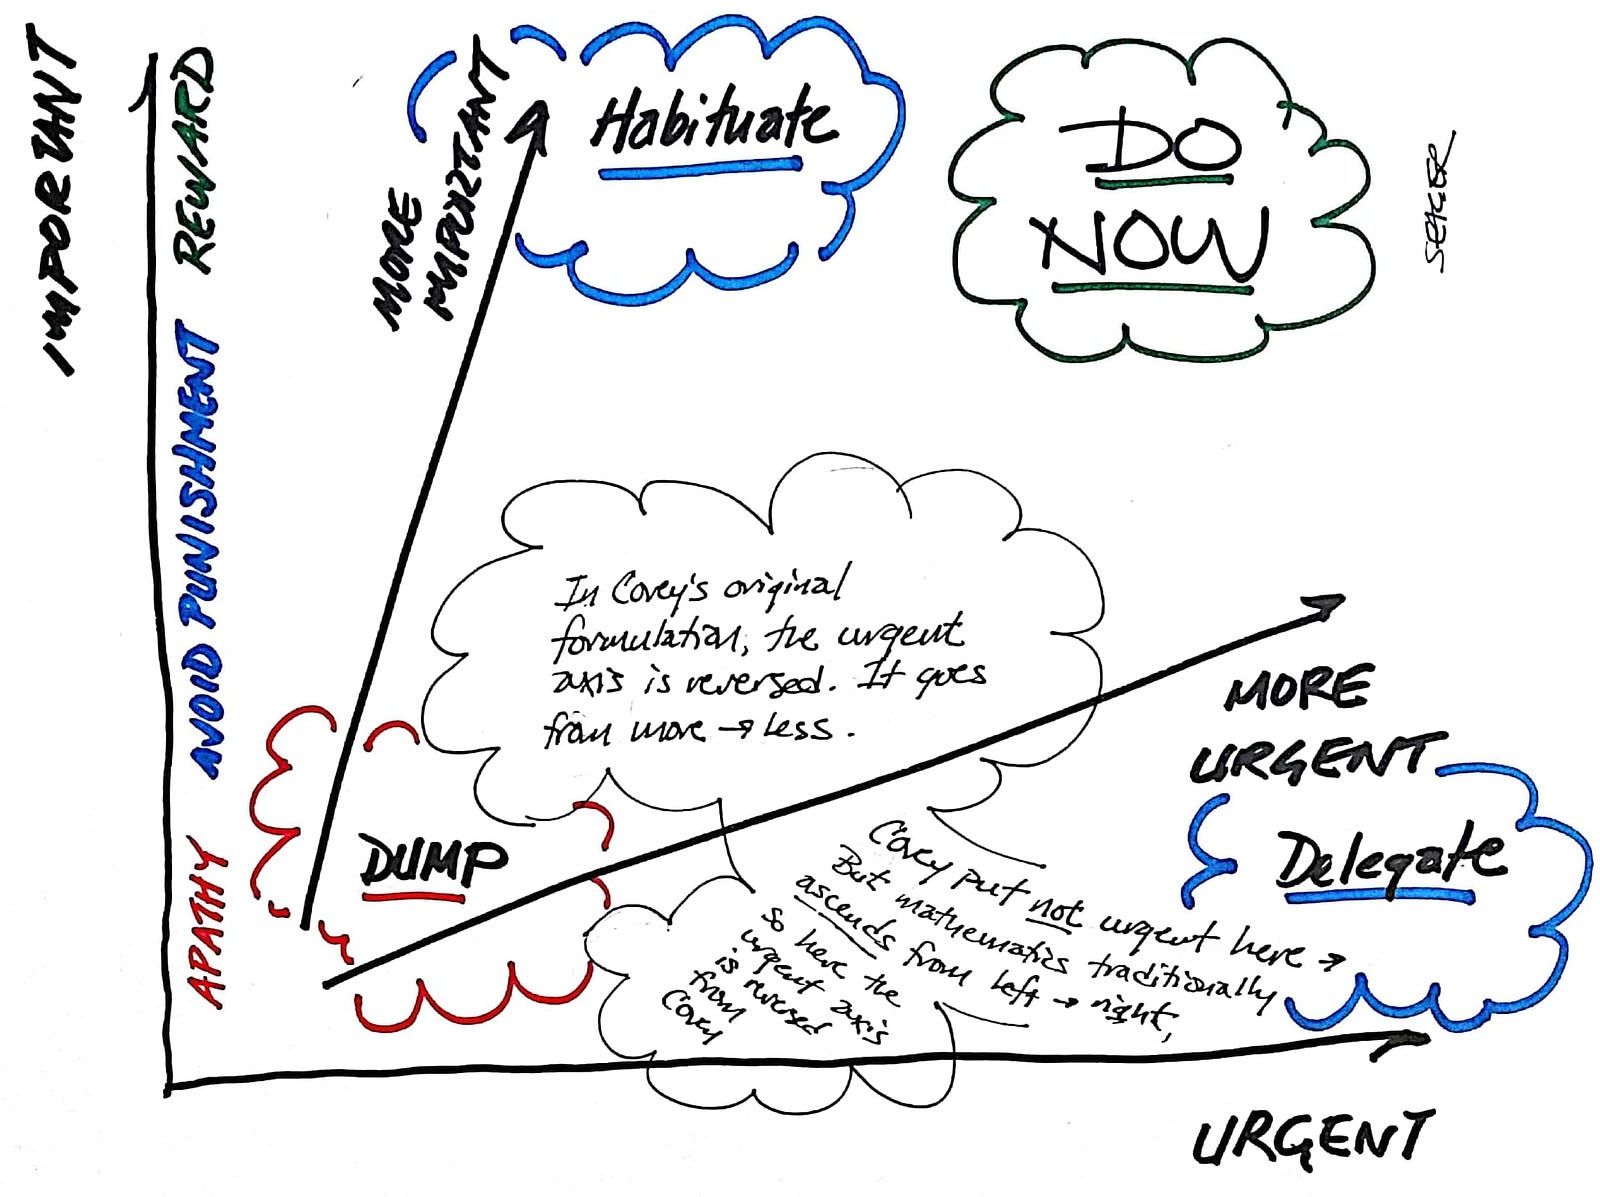 IMPORTANT
REWARD
AVOID PUNISHMENT
APATHY
MORE
IMPORTANT
Habituate
DO
NOW
SEAGER
In Covey's original
formulation, the urgent
axis is reversed. It goes
from more → less.
MORE
URGENT
DUMP
Delegate
Covey put not urgent here →
But mathematics traditionally
ascends from left → right,
so here the
urgent axis
is reversed
from
Covey
URGENT